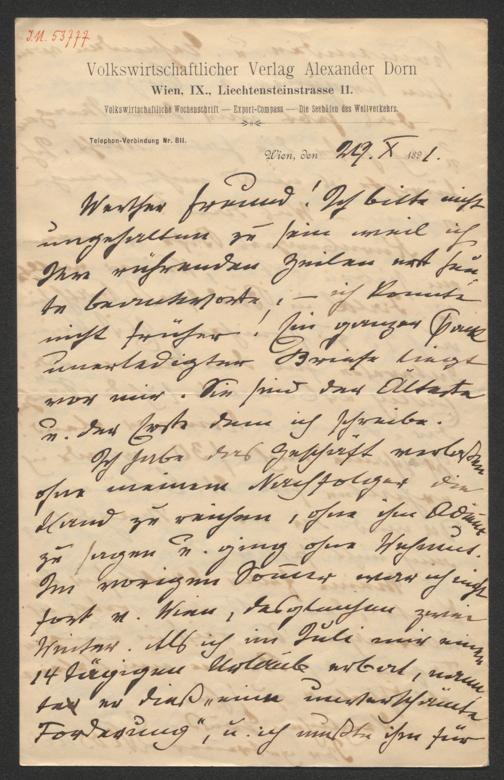 J.N. 53777
Volkswirtschaftlicher Verlag Alexander Dorn
Wien, IX., Liechtensteinstrasse 11.
Volkswirtschaftliche Wochenschrift — Export-Compass — Die Seehäfen des Weltverkehrs.
Telephon-Verbindung Nr. 811.
Wien, den 29. X 1891.
Werther Freund! Ich bitte nicht
ungehalten zu sein weil ich
Ihre rührenden Zeilen erst heu-
te beantworte, — ich konnte
nicht früher! Ein ganzer Pack
unerledigter Briefe liegt
vor mir. Sie sind der Älteste
u. der Erste dem ich schreibe.
Ich habe das Geschäft verlassen
ohne meinem Nachfolger die
Hand zu reichen, ohne ihm Adieu
zu sagen u. ging ohne Wehmut.
Im vorigen Sommer war ich nicht
fort v. Wien, desgleichen zwei
Winter. Als ich im Juli mir einen
14 tägigen Urlaub erbat, nann-
te er dieß „eine unverschämte
Forderung", u. ich mußte ihm für